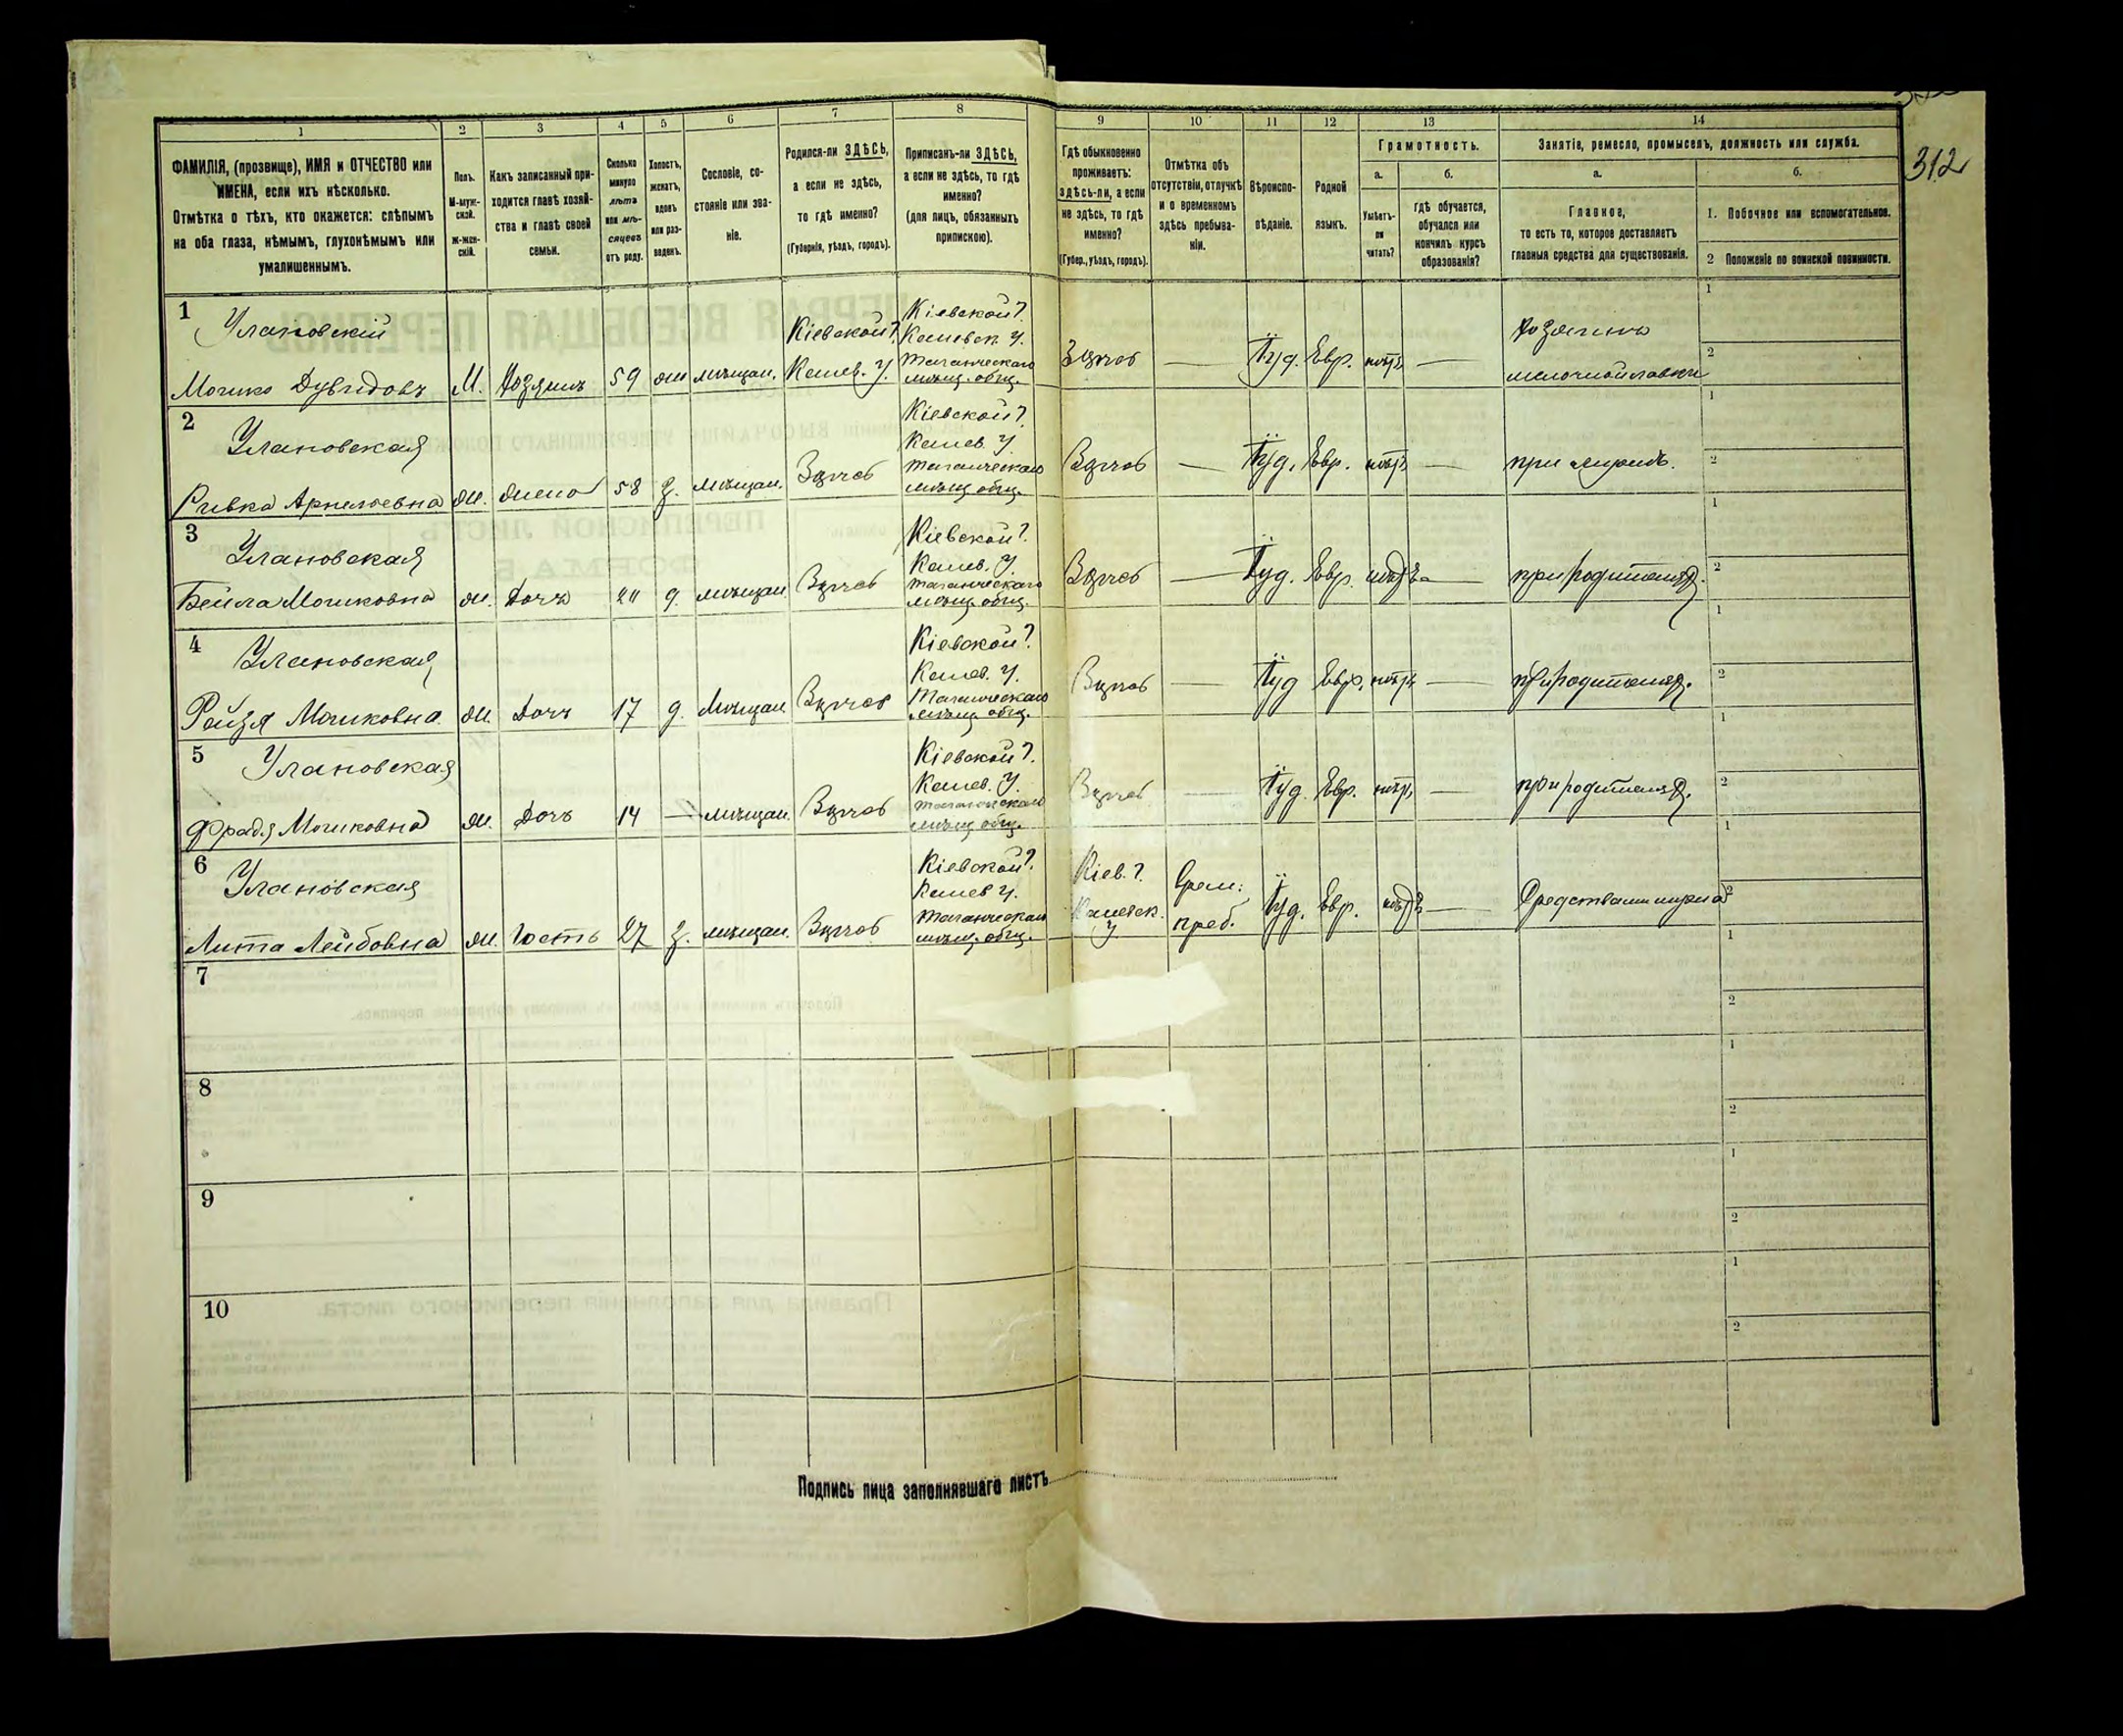 312
1 2 3 4 5 6 7 8 9 10 11 12 13 14
ФАМИЛІЯ, (прозвище), ИМЯ и ОТЧЕСТВО или
ИМЕНА, если ихъ нѣсколько.
Отмѣтка о тѣхъ, кто окажется: слѣпымъ
на оба глаза, нѣмымъ, глухонѣмымъ или
умалишеннымъ.
Полъ.
М-муж-
ской.
Ж-жен-
скій.
Какъ записанный при-
ходится главѣ хозяй-
ства и главѣ своей
семьи.
Сколько
минуло
лѣтъ
или мѣ-
сяцевъ
отъ роду.
Холостъ,
женатъ,
вдовъ
или раз-
веденъ.
Сословіе, со-
стояніе или зва-
ніе.
Родился-ли ЗДѢСЬ,
а если не здѣсь,
то гдѣ именно?
(Губернія, уѣздъ, городъ).
Приписанъ-ли ЗДѢСЬ,
а если не здѣсь, то гдѣ
именно?
(для лицъ, обязанныхъ
припискою).
Гдѣ обыкновенно
проживаетъ:
здѣсь-ли, а если
не здѣсь, то гдѣ
именно?
(Губер., уѣздъ, городъ).
Отмѣтка объ
отсутствіи, отлучкѣ
и о временномъ
здѣсь пребыва-
ніи.
Вѣроиспо-
вѣданіе.
Родной
языкъ.
Грамотность.
а.
Умѣетъ-
ли
читать?
б.
гдѣ обучается,
обучался или
кончилъ курсъ
образованія?
Занятіе, ремесло, промыселъ, должность или служба.
а.
Главное,
то есть то, которое доставляетъ
главныя средства для существованія.
б.
1. Побочное или вспомогательное.
2 Положеніе по воинской повинности.
1
Улановскій
Мошко Дувидовъ М. Хозяинъ 59 мѣщан.
Кіевской г.
Канев. у.
Кіевской г.
Каневск. у.
Таганческаго
мѣщ. общ.
Здѣсь — Іуд. Евр. нѣтъ —
Хозяинъ
мелочной лавки
1
2
2
Улановская
Ривка ж. жена 58 з. мѣщан. Здѣсь
Кіевской г.
Канев. у.
Таганческаго
мѣщ. общ.
Здѣсь — Іуд. Евр. нѣтъ — при мужѣ.
1
2
3
Улановская
Бейла Мошковна ж. Дочь д. мѣщан. Здѣсь
Кіевской г.
Канев. у.
Таганческаго
мѣщ. общ.
Здѣсь — Іуд. Евр. нѣтъ — при родителяхъ.
1
2
4
Улановская
Рейзя Мошковна ж. Дочь 17 д. мѣщан. Здѣсь
Кіевской г.
Канев. у.
Таганческаго
мѣщ. общ.
Здѣсь — Іуд. Евр. нѣтъ — при родителяхъ.
1
2
5
Улановская
Фрадя Мошковна ж. Дочь 14 — мѣщан. Здѣсь
Кіевской г.
Канев. у.
Таганческаго
мѣщ. общ.
Здѣсь — Іуд. Евр. нѣтъ — при родителяхъ.
1
2
6
Улановская
Лейбовна ж. Гость 27 з. мѣщан. Здѣсь
Кіевской г.
Канев. у.
Таганческаго
мѣщ. общ.
Кіев. г.
Каневск.
у.
Врем.
преб.
Іуд. Евр. нѣтъ — Средствами мужа
1
2
7
1
2
8
1
2
9
1
2
10
1
2
Подпись лица заполнявшаго листъ